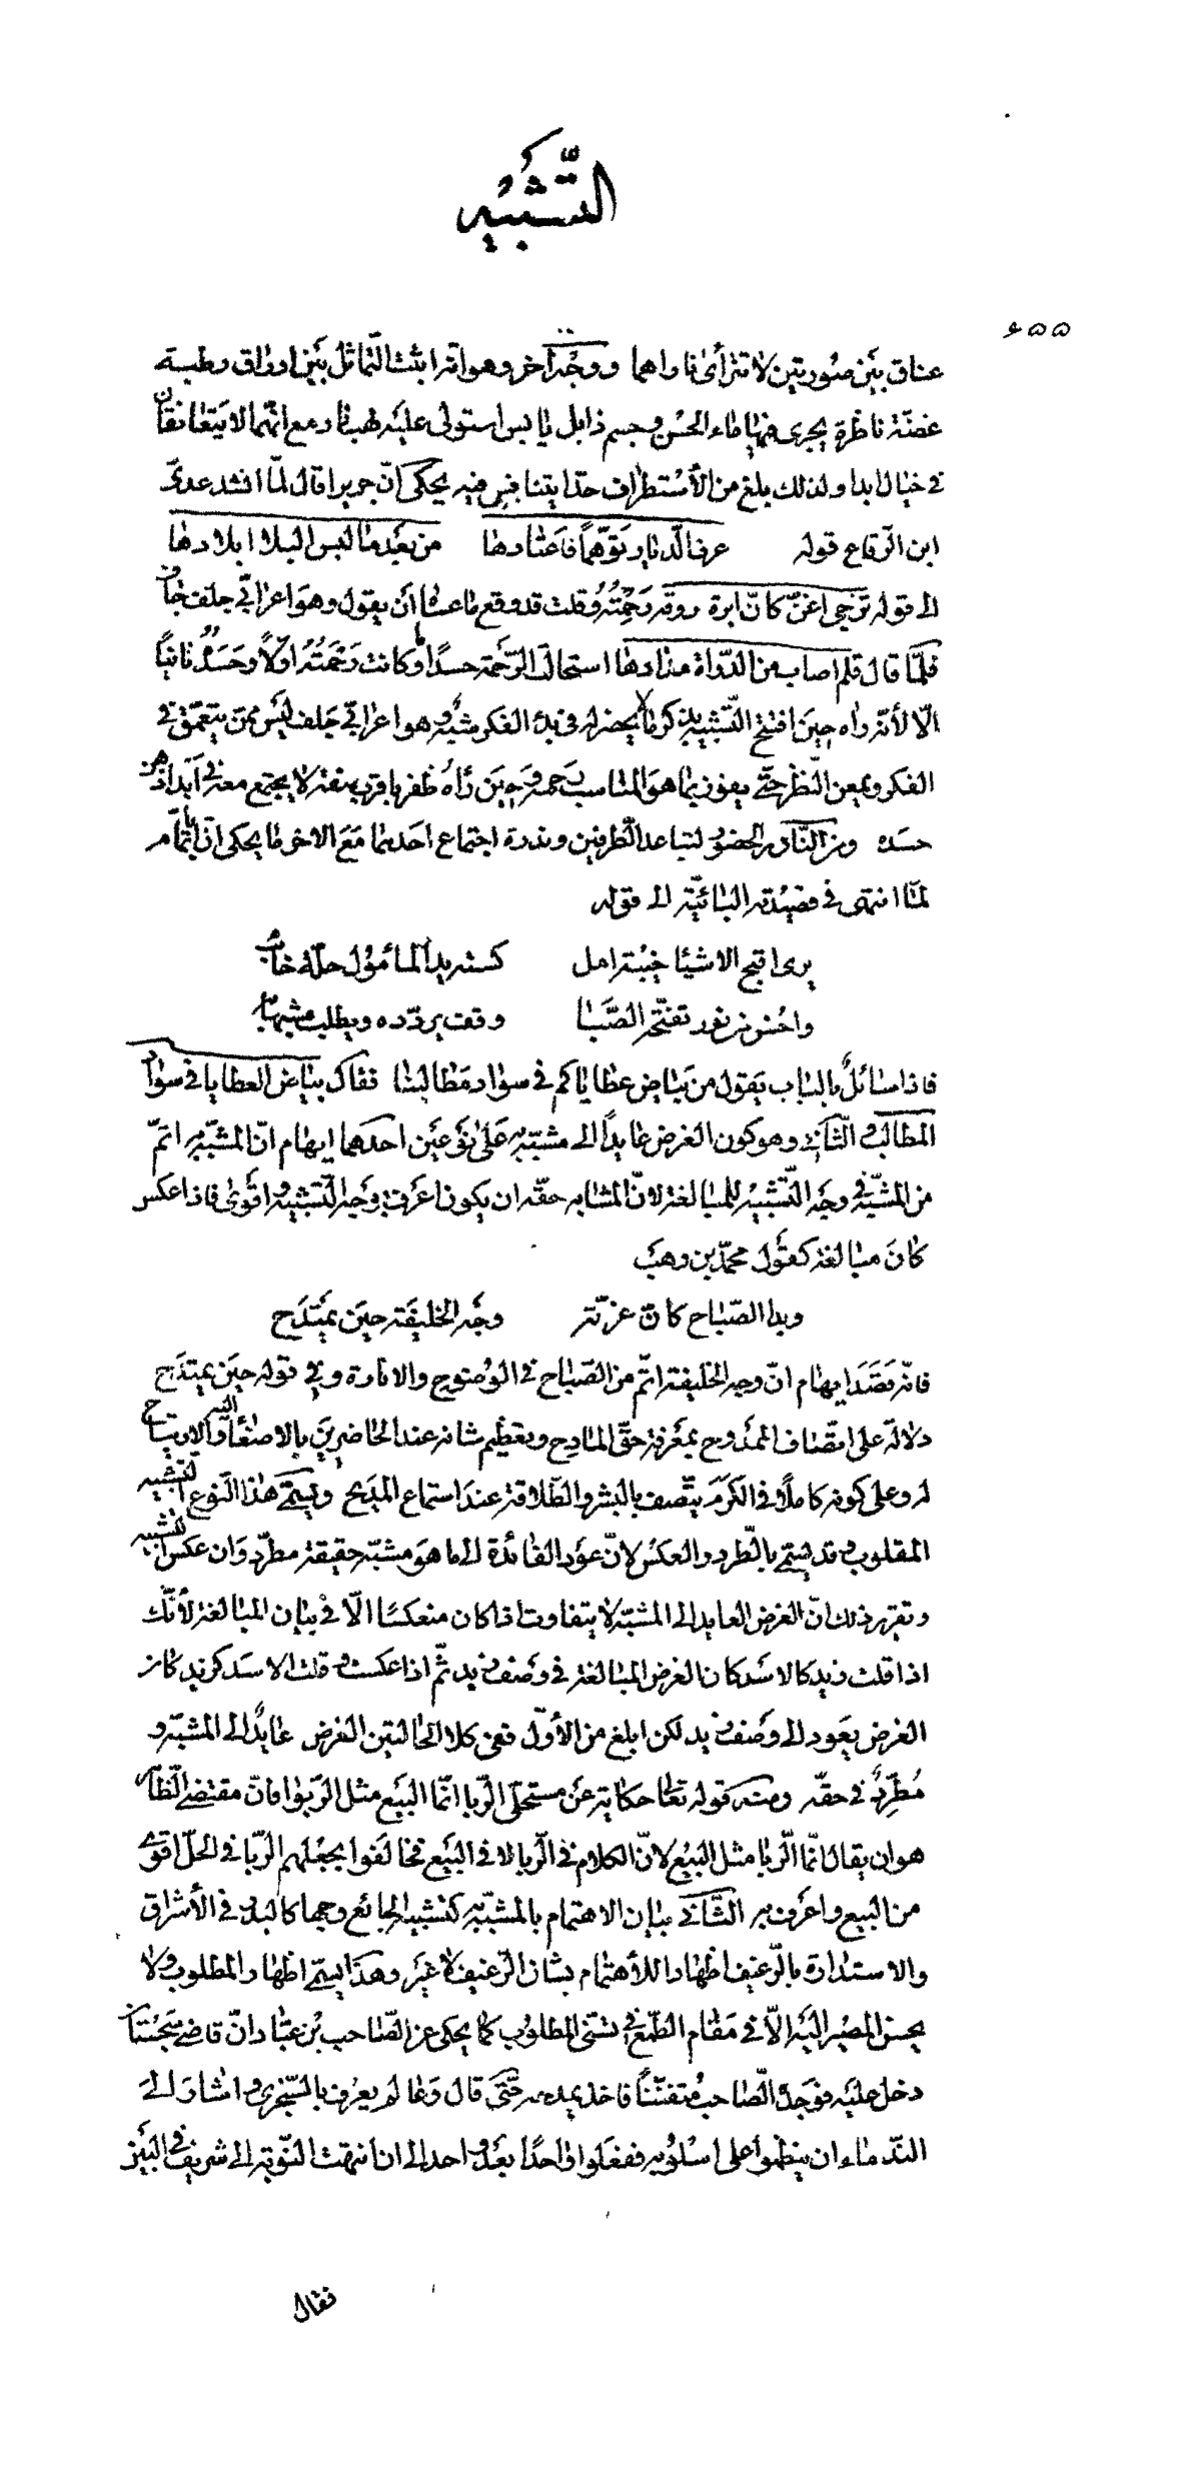 التشبيه
٤٥٥
عناق بين صورتين لا تتراأى ناراهما ووجه آخر وهو انه اثبت التماثل بين اوراق رطبة
غضة ناظرة يجرى فيها ماء الحسن وجسم ذابل يابس استولى عليه لهب نار مع انهما لا يتعانقان
فى خيال ابدا ولذلك بلغ من الأستطراف حدا يتنافس فيه يحكى ان جريرا قال لما انشد عدى
ابن الرقاع قوله عرف الديار توهما فاعتادها من بعد ما لبس البلا ابلادها
الى قوله تزجى اغن كان ابرة روقه رحمته وقلت قد وقع ما عساه أن يقول وهو اعرابى جلف جاف
فلما قال قلم اصاب من الدواة مدادها استحالت الرحمة حسدا وكانت رحمته اولا وحسده ثانيا
الا لأنه راه حين افتتح التشبيه بذكر ما لا يحضر له فى بدء الفكر شبه وهو اعرابى جلف ليس ممن يتعمق فى
الفكر ويمعن النظر حتى يفوز بما هو المناسب رحمه وحين رآه ظفر باقرب صفة لا يجتمع معه فى آبد الذهن
حسده ومن النادر الحضور لتباعد الطرفين وندرة اجتماع احدهما مع الاخر ما يحكى ان ابا تمام
لما انتهى فى قصيدته البائية الى قوله
يرى اقبح الاشياء خيبة امل كسته يد المأمول حلة خائب
واحسن من نور تفتحه الصبا وقف يردده ويطلب مشبها به
فاذا سائل بالباب يقول من بياض عطاياكم فى سواد مطالبنا فقال بياض العطايا فى سواد
المطالب والثانى وهو كون الغرض عايدا الى مشبه به على نوعين احدهما ايهام ان المشبه اتم
من المشبه به فى وجه التشبيه للمبالغة لان المشابه حقه ان يكون اعرف بوجه التشبيه واقوى فاذا عكس
كان مبالغة كقول محمد بن وهب
وبدا الصباح كان غرته وجه الخليفة حين يمتدح
فانه قصد ايهام ان وجه الخليفة اتم من الصباح فى الوضوح والانارة وفى قوله حين يمتدح
دلالة على اتصاف الممدوح بمعرفة حق المادح وتعظيم شانه عند الحاضرين بالاصغاء اليه والارتياح
له وعلى كونه كاملا فى الكرم يتصف بالبشر والطلاقة عند استماع المديح ويسمى هذا النوع التشبيه
المقلوب وقد يسمى بالطرد والعكس لان عود الفائدة الى ما هو مشبه حقيقة مطرد وان عكس التشبيه
وتقرير ذلك ان الغرض العايد الى المشبه لا يتفاوت اذا كان منعكسا الا فى بيان المبالغة لأنك
اذا قلت زيد كالاسد كان الغرض المبالغة فى وصف زيد ثم اذا عكست وقلت الاسد كزيد كان
الغرض يعود الى وصف زيد لكن ابلغ من الأول ففى كلا الحالتين الغرض عايد الى المشبه و
مطرد فى حقه ومنه قوله تعالى حكاية عن مستحلى الربا انما البيع مثل الربوا فان مقتضى الظاهر
هو ان يقال انما الربا مثل البيع لان الكلام فى الربا لا فى البيع فخالفوا بجعلهم الربا فى الحل اقوى
من البيع واعرف به الثانى بيان الاهتمام بالمشبه به كتشبيه الجائع وجها كالبدر فى الأشراق
والاستدارة بالرغيف اظهارا للأهتمام بشان الرغيف لا غير وهذا يسمى اظهار المطلوب ولا
يحسن المصير اليه الا فى مقام الطمع فى تسنى المطلوب كما يحكى عن الصاحب بن عباد ان قاضى سجستان
دخل عليه فوجده الصاحب متفننا فاخذ يمدحه حتى قال وعالم يعرف بالسجزى واشار الى
الندماء ان ينظموا على اسلوبه ففعلوا واحدا بعد واحد الى ان انتهت النوبة الى شريف فى البين
فقال